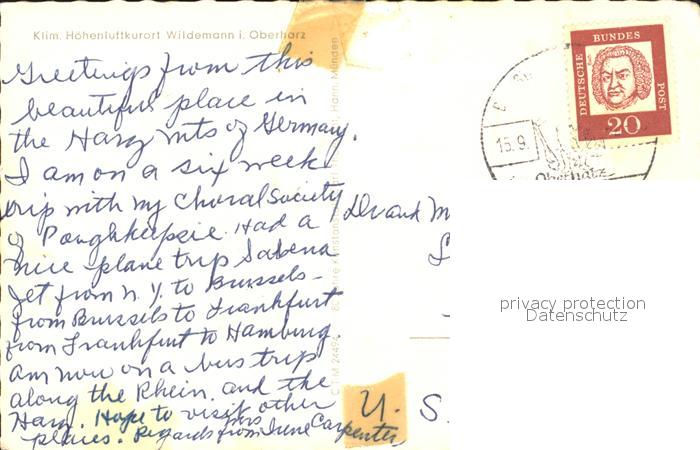 Klim. Höhenluftkurort Wildemann i. Oberharz
Greetings from this
beautiful place in
the Harz Mts of Germany.
I am on a six week
trip with my Choral Society
of Poughkeepsie. Had a
nice plane trip Sabena
Jet from N.Y. to Brussels-
from Brussels to Frankfurt
from Frankfurt to Hamburg.
Am now on a bus trip
along the Rhein. and the
Harz. Hope to visit other
places. Regards from Mrs Irene Carpenter,
Dr and M
U. S.
DEUTSCHE BUNDES POST
20
15.9.
Oberharz
privacy protection
Datenschutz